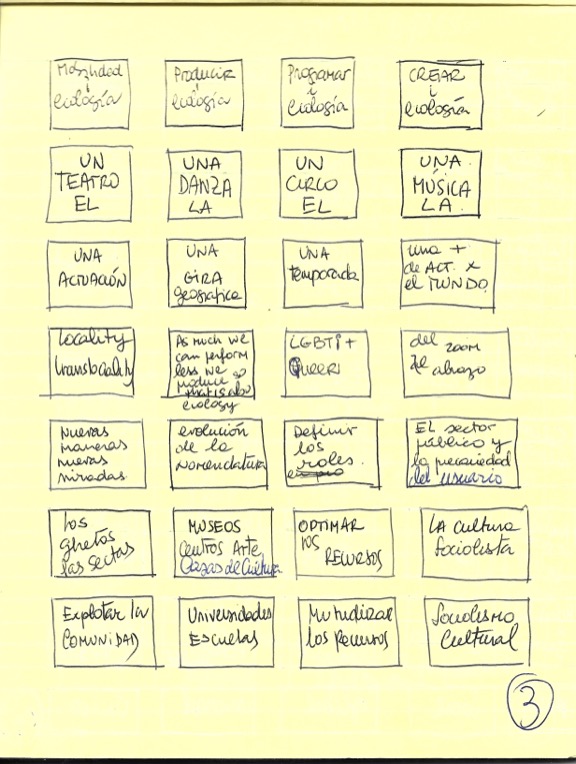 Movilidad
i
ecología
Producir
i
ecología
Programar
i
ecología
CREAR
i
ecología
UN
TEATRO
EL
UNA
DANZA
LA
UN
CIRCO
EL
UNA
MÚSICA
LA
UNA
ACTUACIÓN
UNA
GIRA
geografica
UNA
temporada
una +
de ACT. x
el MUNDO
locality
translocality
As much we
can perform
less we
produce
ecology
LGBTI+
Queer
del zoom
al abrazo
Nuevas
maneras
nuevas
miradas
evolución
de la
Nomenclatura
Definir
los
roles
EL sector
público y
la precariedad
del usuario
los
ghetos
las sectas
MUSEOS
Centros Arte
Casas de Cultura
OPTIMAR
los
RECURSOS
LA cultura
Socialista
Explotar la
COMUNIDAD
Universidades
Escuelas
Mutualizar
los Recursos
Socialismo
Cultural
3